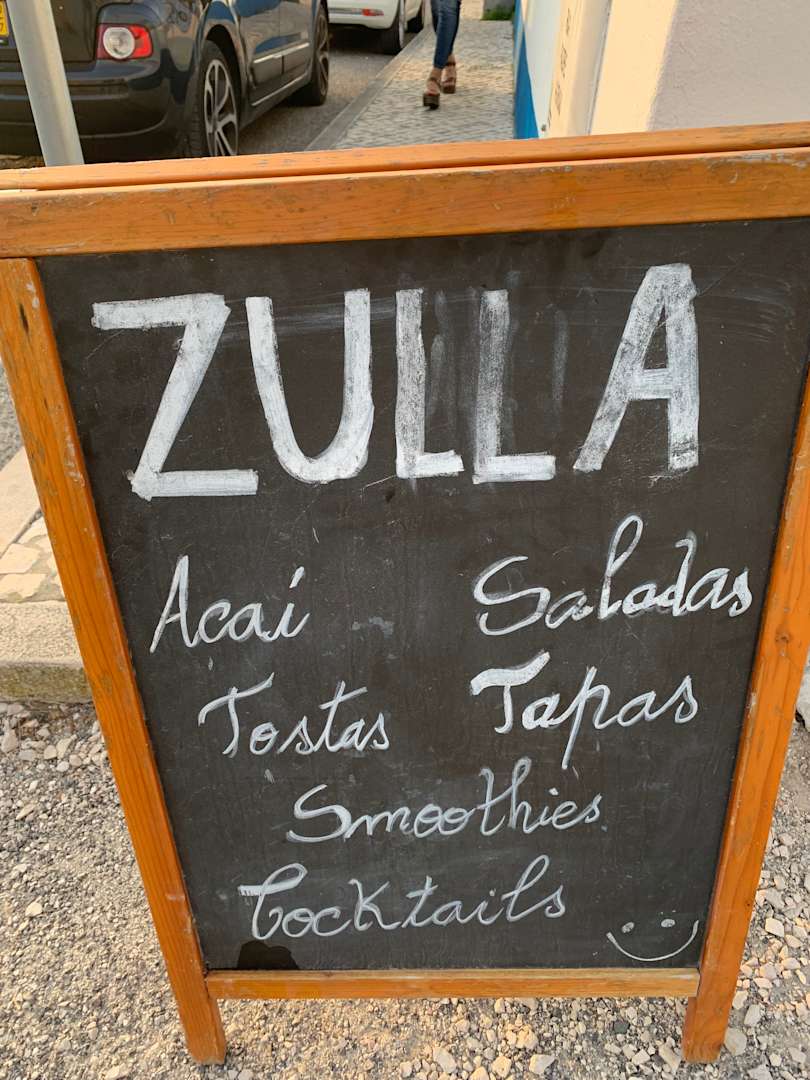 ZULLA
Acaí Saladas
Tostas Tapas
Smoothies
Cocktails